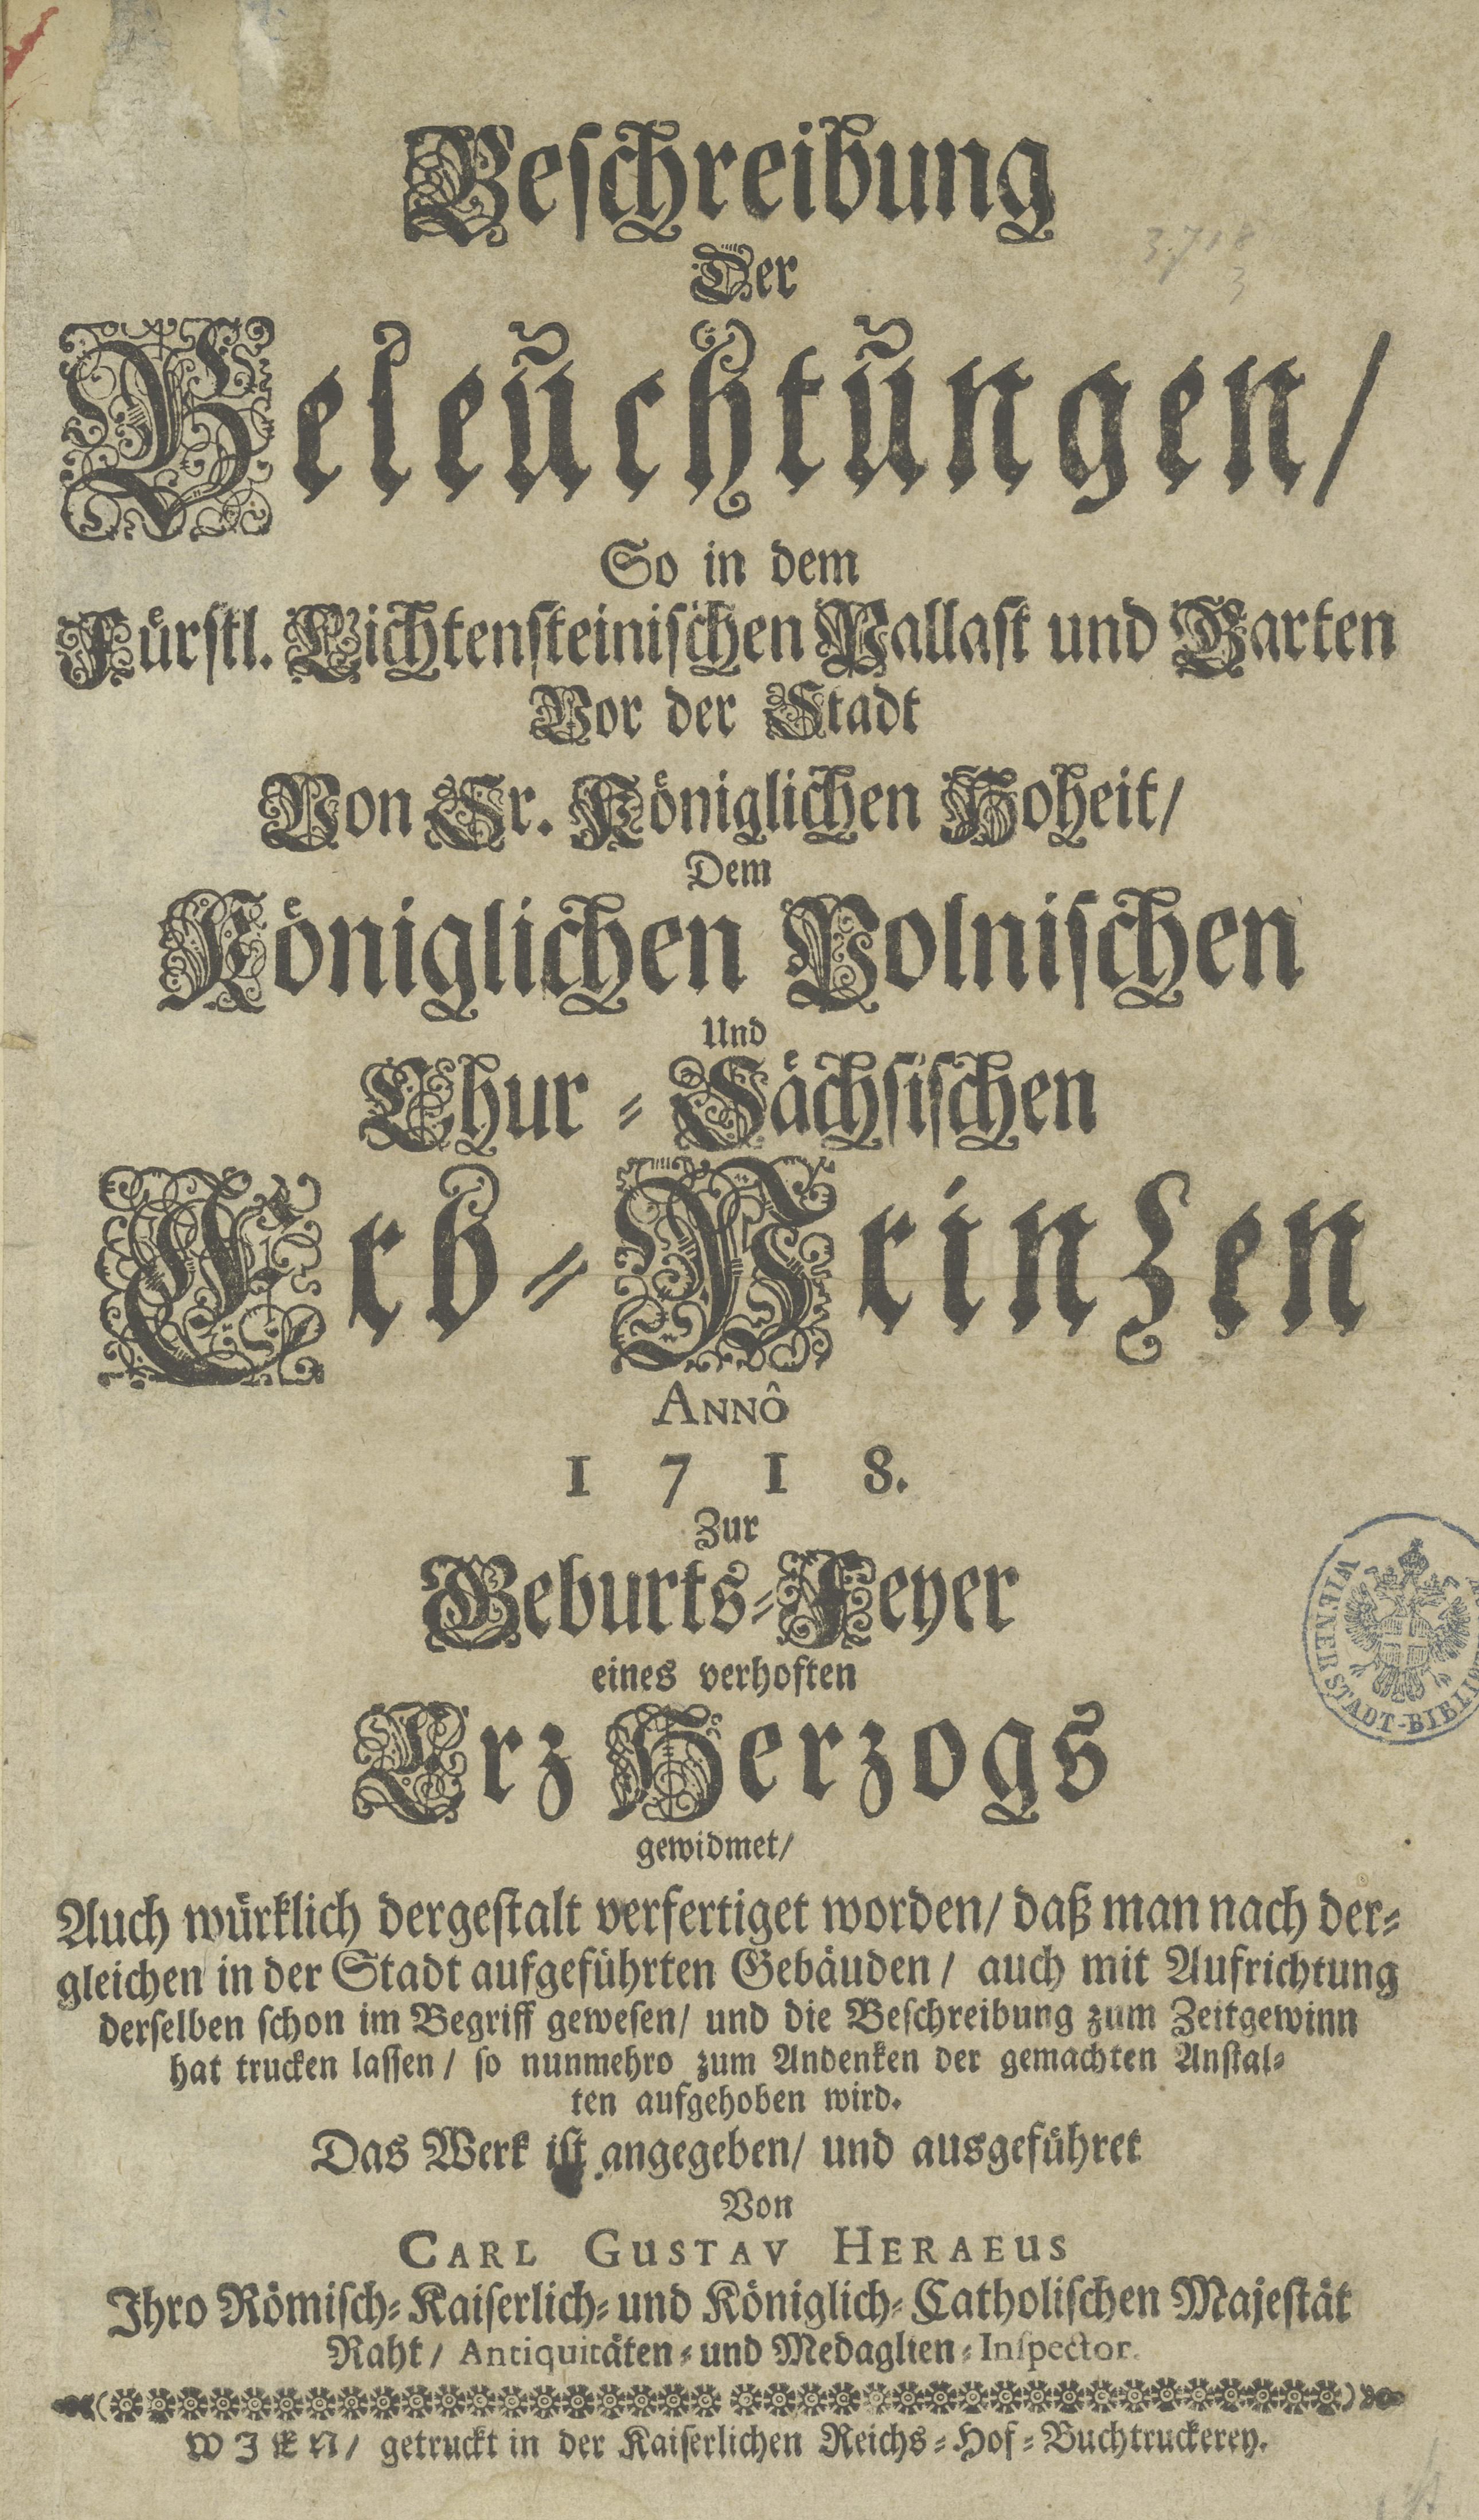 Beschreibung
Der
Beleuchtungen/
So in dem
Fürstl. Lichtensteinischen Pallast und Garten
Vor der Stadt
Von Sr. Königlichen Hoheit/
Dem
Königlichen Polnischen
Und
Chur-Sächsischen
Erb-Prinzen
ANNÔ
1718.
Zur
Geburts-Feyer
eines verhoften
Erz Herzogs
gewidmet/
Auch würklich dergestalt verfertiget worden/ daß man nach der-
gleichen in der Stadt aufgeführten Gebäuden/ auch mit Aufrichtung
derselben schon im Begriff gewesen/ und die Beschreibung zum Zeitgewinn
hat trucken lassen/ so nunmehro zum Andenken der gemachten Anstal-
ten aufgehoben wird.
Das Werk ist angegeben/ und ausgeführet
Von
CARL GUSTAV HERAEUS
Ihro Römisch-Kaiserlich-und Königlich-Catholischen Majestät
Raht/ Antiquitäten-und Medaglien-Inspector.
WIEN/ getruckt in der Kaiserlichen Reichs-Hof-Buchtruckerey.
WIENER STADT-BIBLI